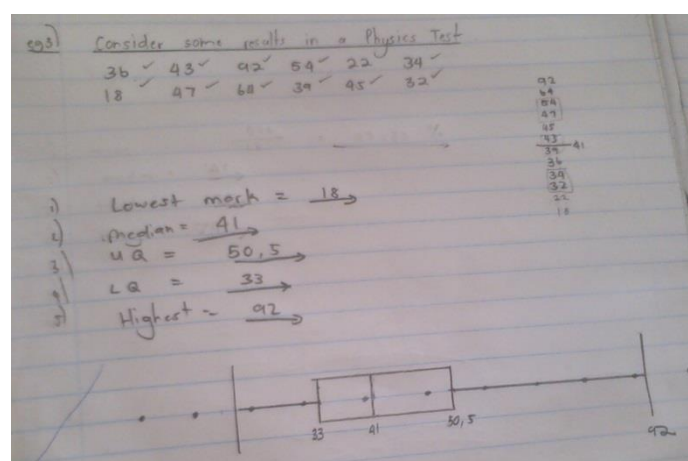 eg3) Consider some results in a Physics Test
36 ✓ 43 ✓ 92 ✓ 54 ✓ 22 ✓ 34 ✓
18 ✓ 47 ✓ 64 ✓ 39 ✓ 45 ✓ 32 ✓
92
64
54
47
45
43
39 41
36
34
32
22
18
1) Lowest mark = 18
2) median = 41
3) UQ = 50,5
4) LQ = 33
5) Highest = 92
33 41 50,5 92